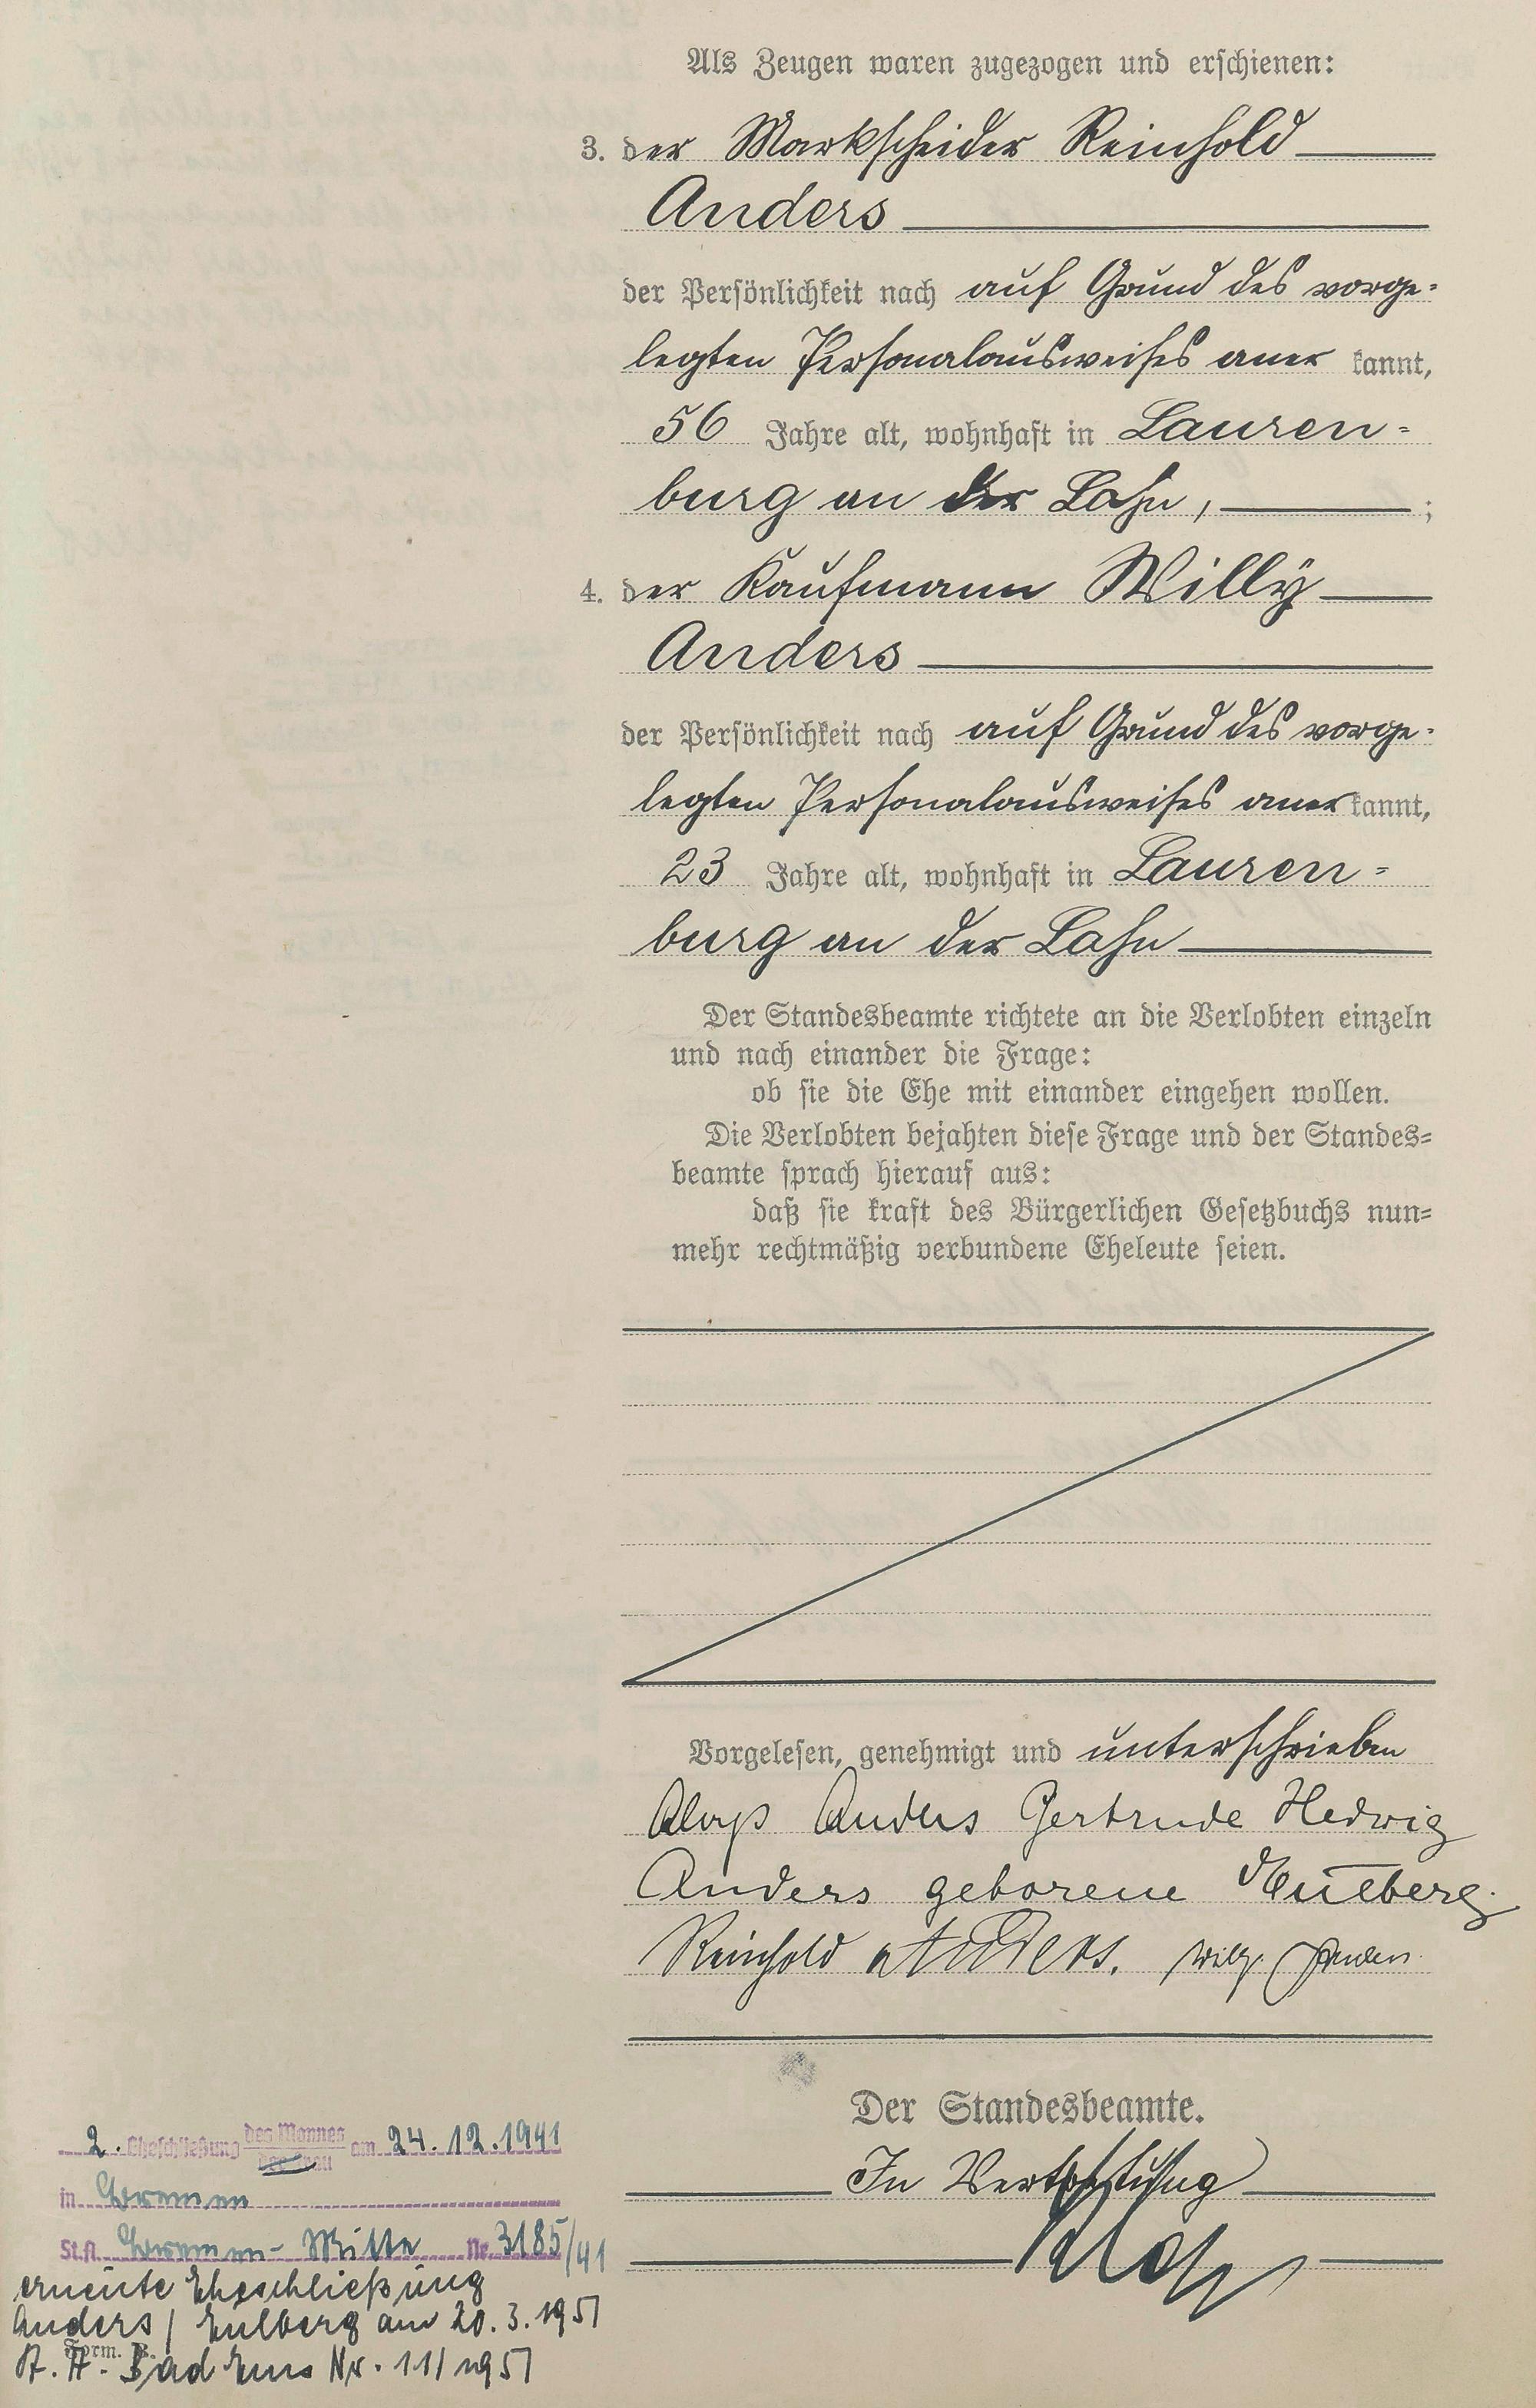 Als Zeugen waren zugezogen und erschienen:
3. der Markscheider Reinhold
Anders
der Persönlichkeit nach auf Grund des vorge-
legten Personalausweises aner kannt,
56 Jahre alt, wohnhaft in Lauren-
burg an der Lahn, ;
4. der Kaufmann Willy
Anders
der Persönlichkeit nach auf Grund des vorge-
legten Personalausweises aner kannt,
23 Jahre alt, wohnhaft in Lauren-
burg an der Lahn
Der Standesbeamte richtete an die Verlobten einzeln
und nach einander die Frage:
ob sie die Ehe mit einander eingehen wollen.
Die Verlobten bejahten diese Frage und der Standes-
beamte sprach hierauf aus:
daß sie kraft des Bürgerlichen Gesetzbuchs nun-
mehr rechtmäßig verbundene Eheleute seien.
Vorgelesen, genehmigt und unterschrieben
Aloys Anders Gertrude Hedwig
Anders geborene Eulberg.
Reinhold Anders. Willy Anders.
Der Standesbeamte.
In Vertretung
2. Eheschließung des Mannes der Frau am 24.12.1941
in Bremen
St.A. Bremen-Mitte Nr. 3185/41
erneute Eheschließung
Anders / Eulberg am 20.3.1951
St. A. Bad Ems Nr. 11/1951
Form. B.